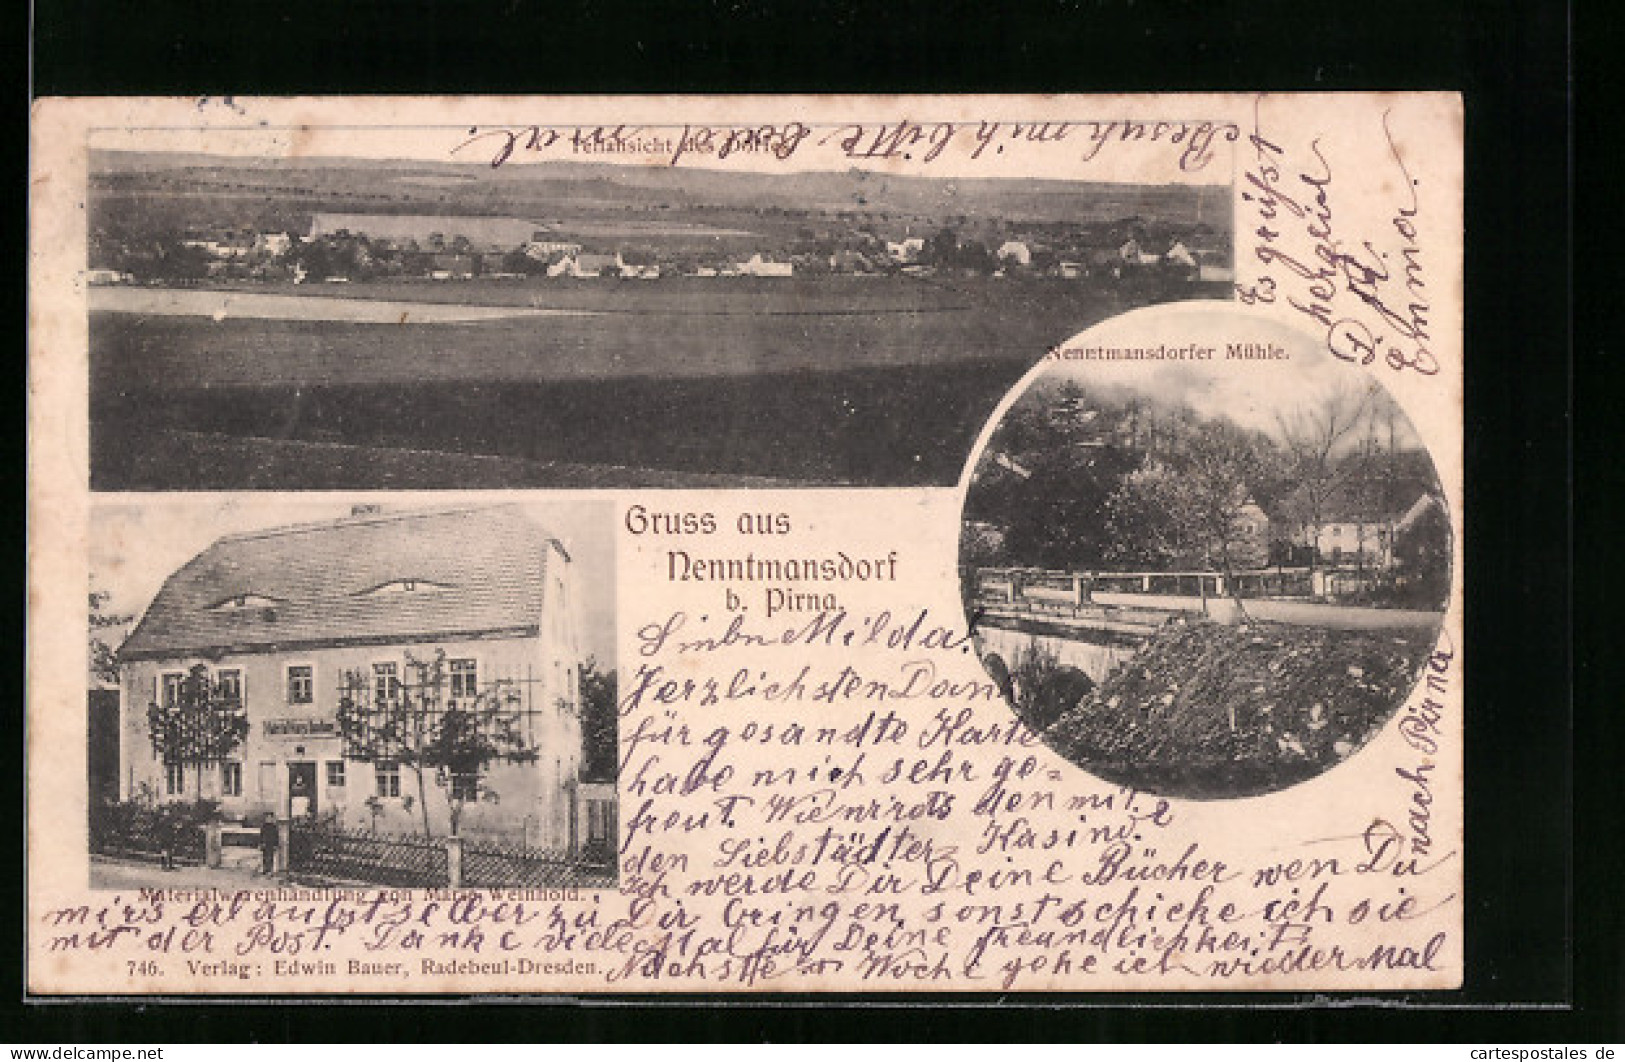 Besuch mich bitte bald mal.
Teilansicht des Dorfes
Es grüßt
herzlich
D. M.
Emma.
Nenntmansdorfer Mühle.
Gruss aus
Nenntmansdorf
b. Pirna.
Liebe Milda!
Herzlichsten Dan
für gesandte Karte
habe mich sehr ge=
freut. Wie wirds den mit
den Liebstädter Kasino?
Ich werde Dir Deine Bücher wen Du
mirs erlaubst selber zu Dir bringen, sonst schicke ich sie
mit der Post. Danke viele Mal für Deine freundlichkeit.
Nächste Woche gehe ich wieder Mal
nach Pirna
Materialwarenhandlung von Marie Weinhold.
746. Verlag: Edwin Bauer, Radebeul-Dresden.
www.cartespostales.de